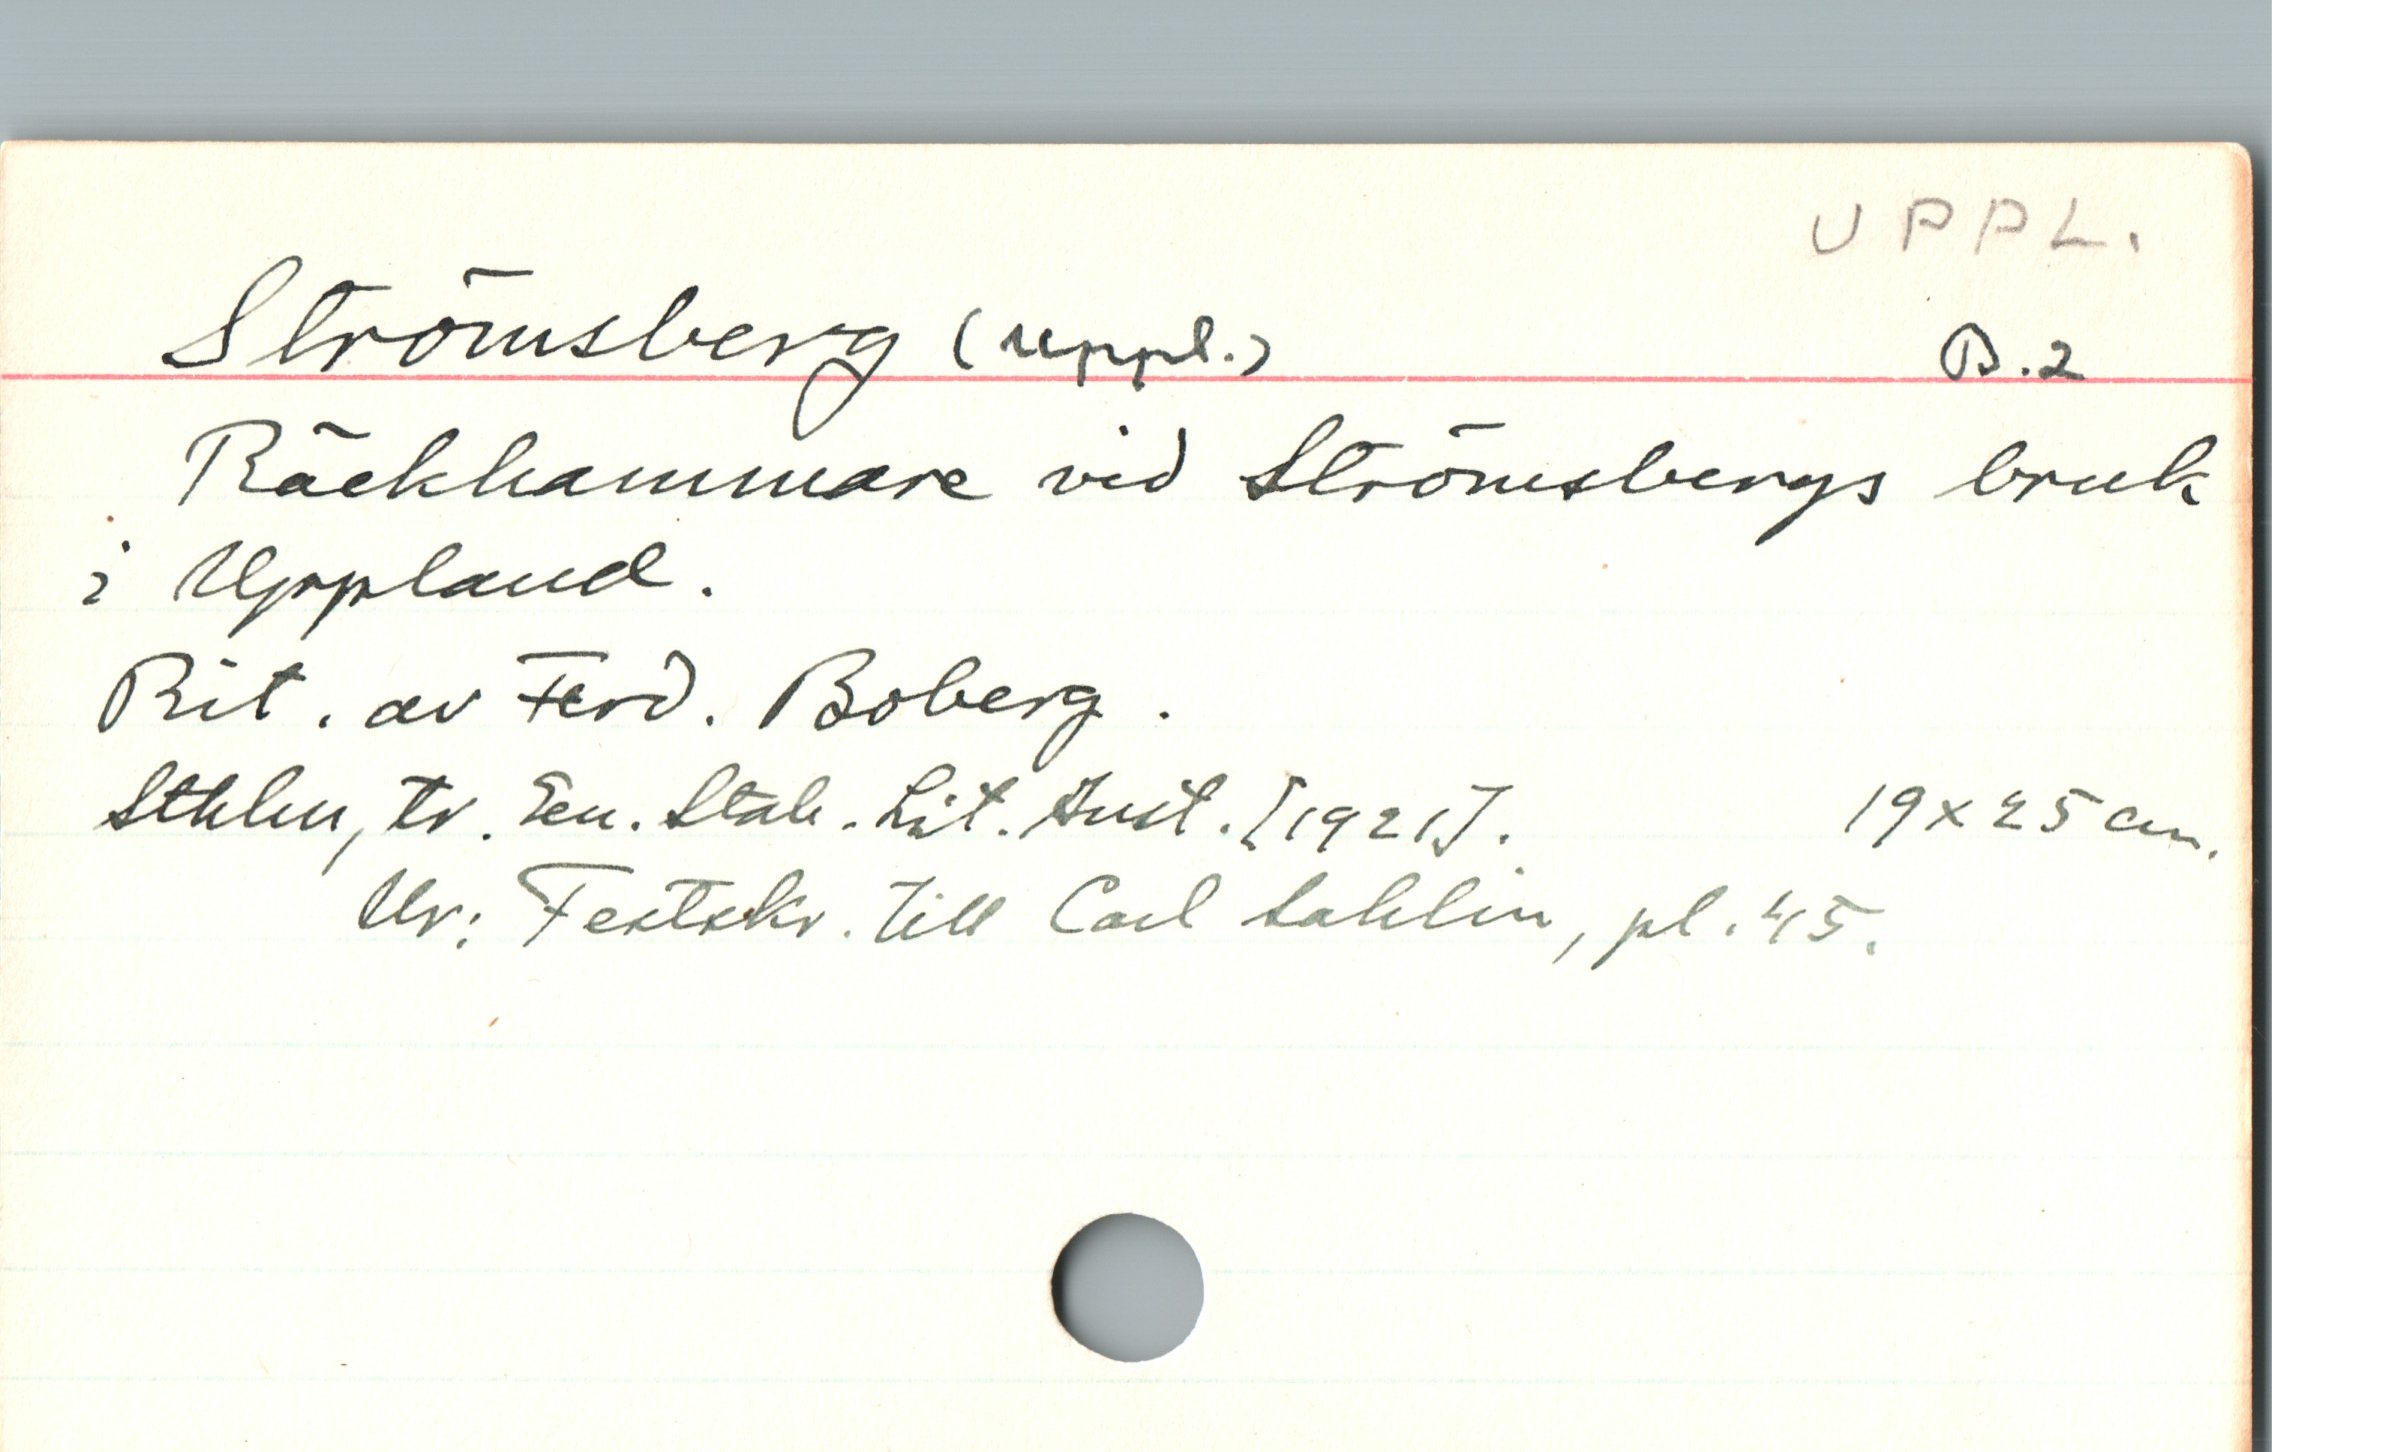 UPPL.
Strömsberg (Uppl.) B.2
Räckhammare vid Strömsbergs bruk
i Uppland.
Rit. av Ferd. Boberg.
Sthlm, tr. Gen. Stab. Lit. Anst. [1921]. 19 x 25 cm.
Ur: Festskr. till Carl Sahlin, pl. 45.